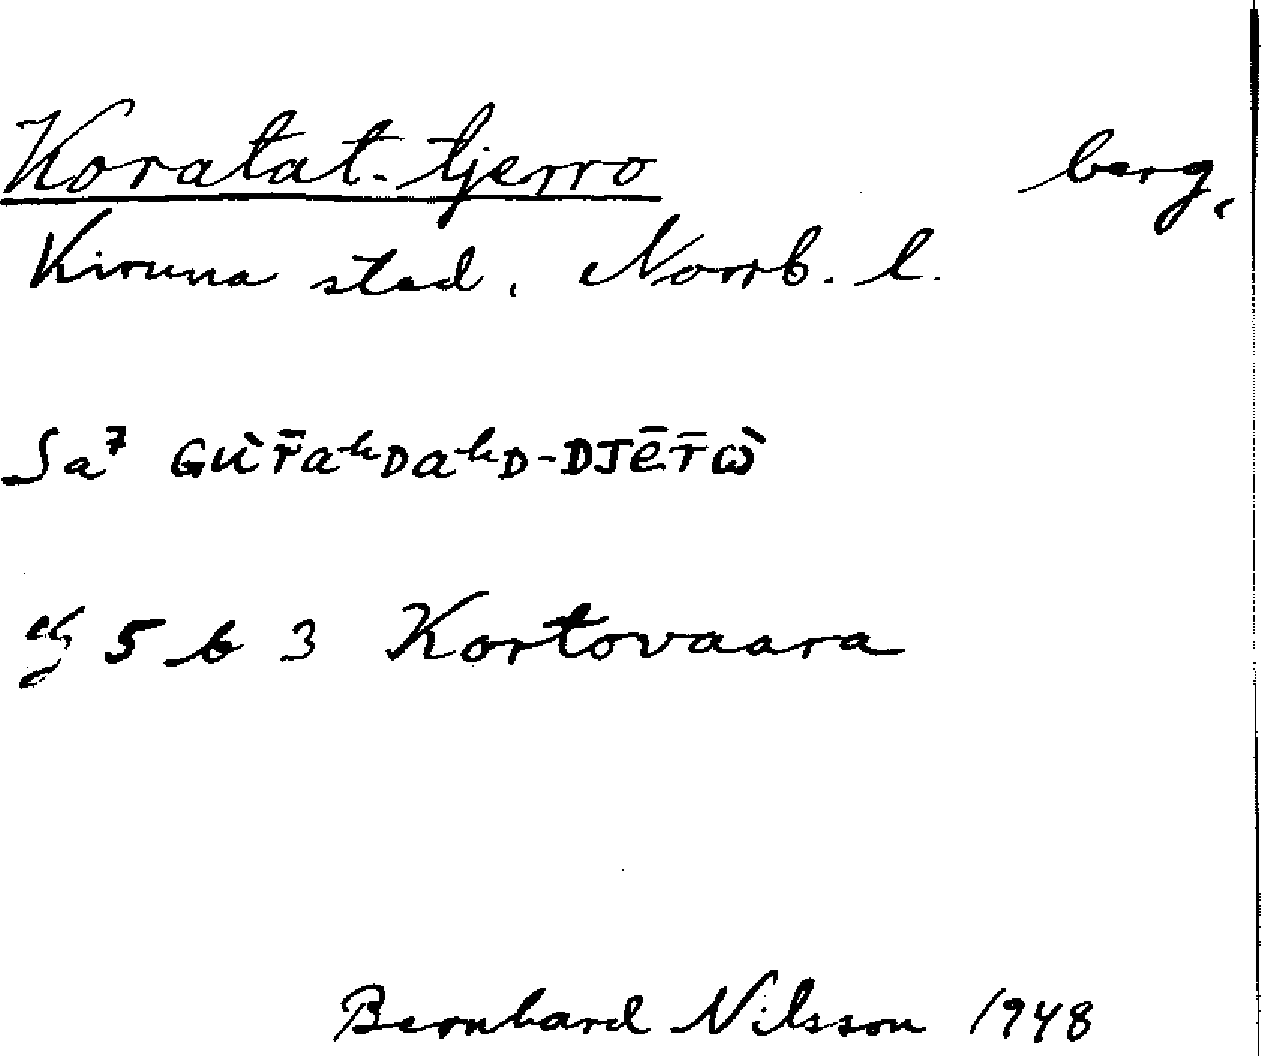 Koratat-tjerro berg,
Kiruna stad, Norrb. l.
Sa⁷ GÙr̄aʰDaʰD-DJēr̄ὼ
eg 5 b 3 Kortovaara
Bernhard Nilsson 1948